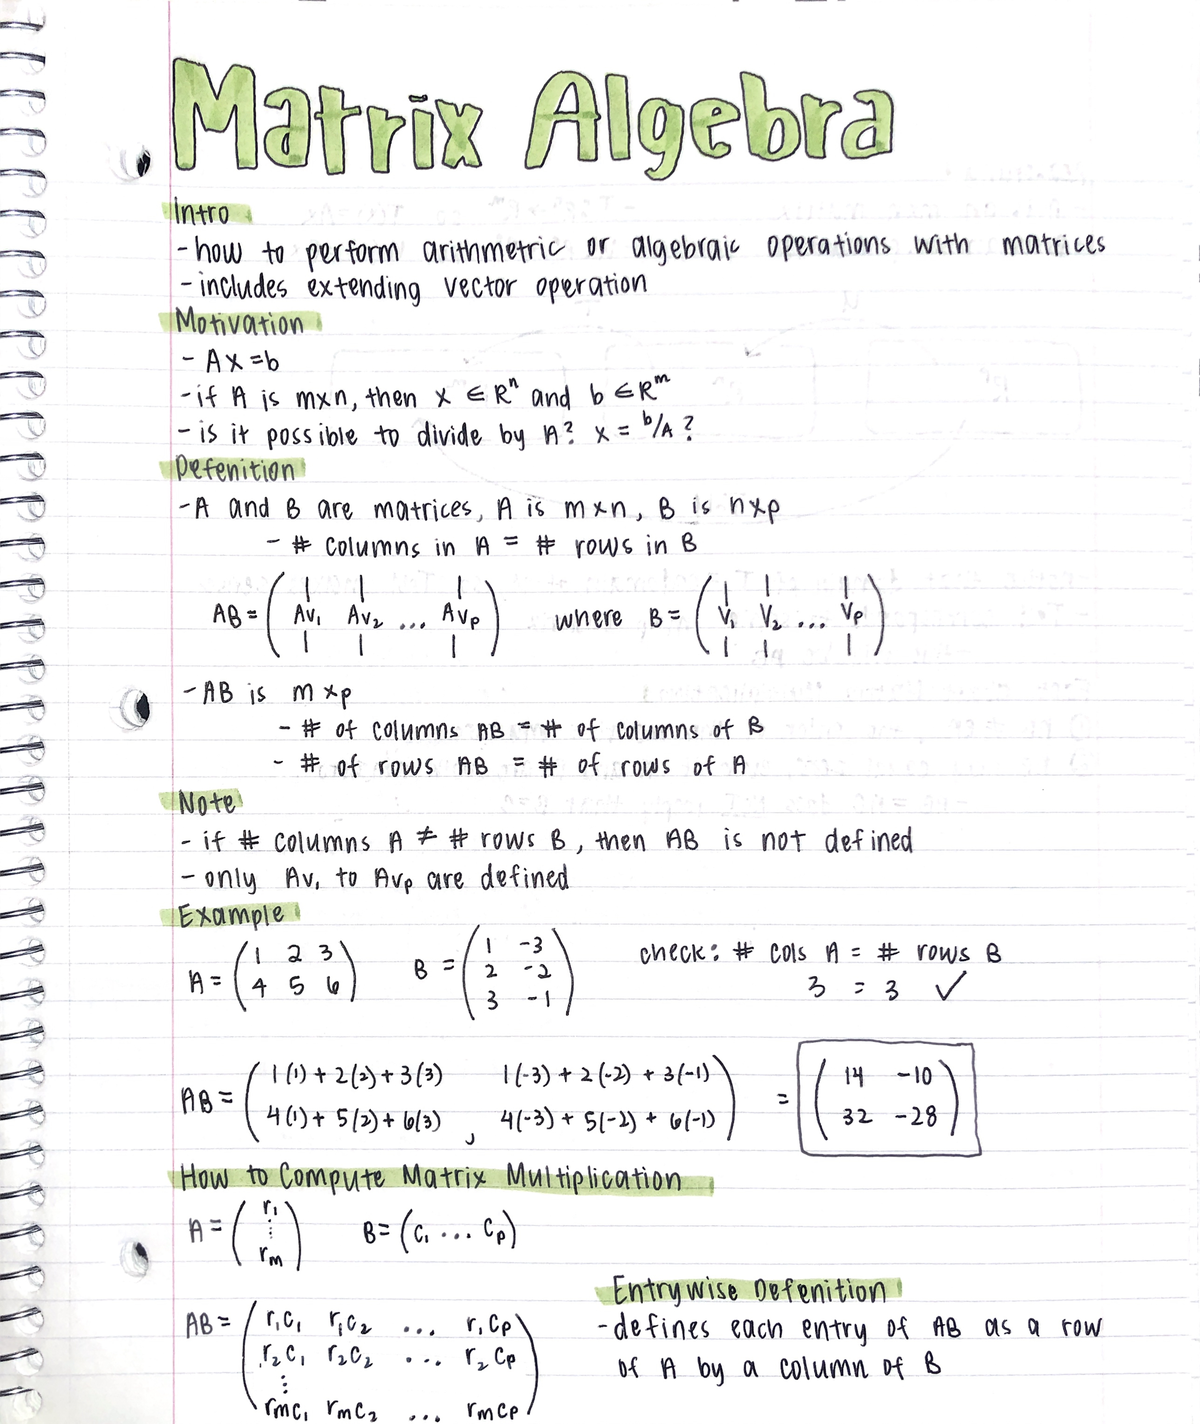 Matrix Algebra
Intro
- how to perform arithmetric or algebraic operations with matrices
- includes extending vector operation
Motivation
- Ax = b
- if A is m×n, then x ∈ Rⁿ and b ∈ Rᵐ
- is it possible to divide by A? x = b/A ?
Defenition
- A and B are matrices, A is m×n, B is n×p
- # columns in A = # rows in B
AB = ( Av₁ Av₂ ... Avₚ ) where B = ( v₁ v₂ ... vₚ )
- AB is m×p
- # of columns AB = # of columns of B
- # of rows AB = # of rows of A
Note
- if # columns A ≠ # rows B, then AB is not defined
- only Av₁ to Avₚ are defined
Example
A = ( 1 2 3 / 4 5 6 ) B = ( 1 -3 / 2 -2 / 3 -1 ) check: # cols A = # rows B
3 = 3 ✓
AB = ( 1(1) + 2(2) + 3(3) 1(-3) + 2(-2) + 3(-1) / 4(1) + 5(2) + 6(3) , 4(-3) + 5(-2) + 6(-1) ) = ( 14 -10 / 32 -28 )
How to Compute Matrix Multiplication
A = ( r₁ ⋮ rₘ ) B = ( c₁ ... cₚ )
AB = ( r₁c₁ r₁c₂ ... r₁cₚ
r₂c₁ r₂c₂ ... r₂cₚ
⋮
rₘc₁ rₘc₂ ... rₘcₚ )
Entrywise Defenition
- defines each entry of AB as a row
of A by a column of B